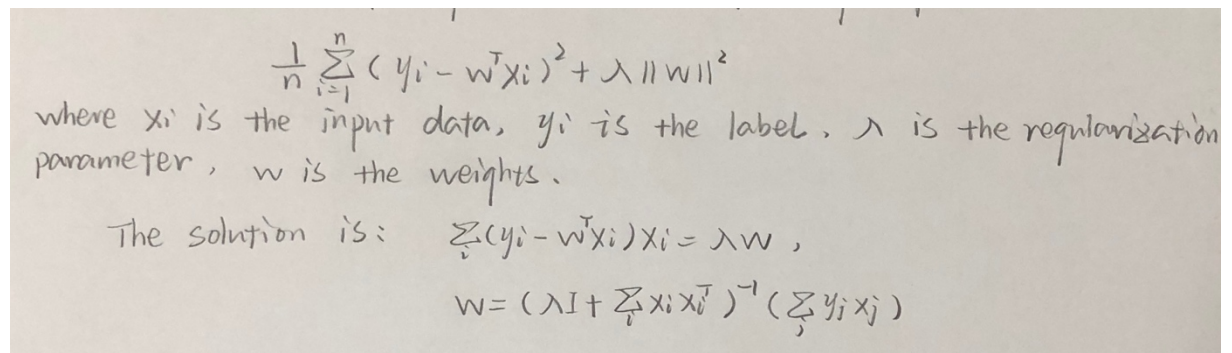 1/n Σ_{i=1}^{n} (yi - wᵀxi)² + λ||w||²
where xi is the input data, yi is the label, λ is the regularization
parameter, w is the weights.
The solution is: Σ_i (yi - wᵀxi)xi = λw,
w = (λI + Σ_i xi xiᵀ)⁻¹ (Σ_j yj xj)